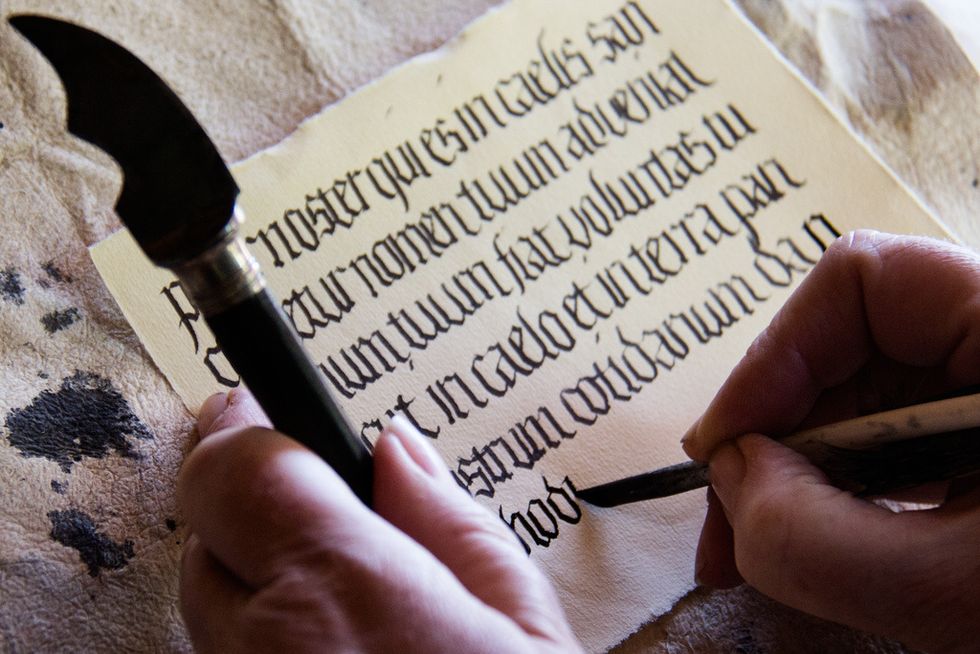 p r noster qui es in caelis san
c etur nomen tuum adveniat
num tuum fiat voluntas tu
cut in caelo et in terra pan
strum cotidanum da n
hodi